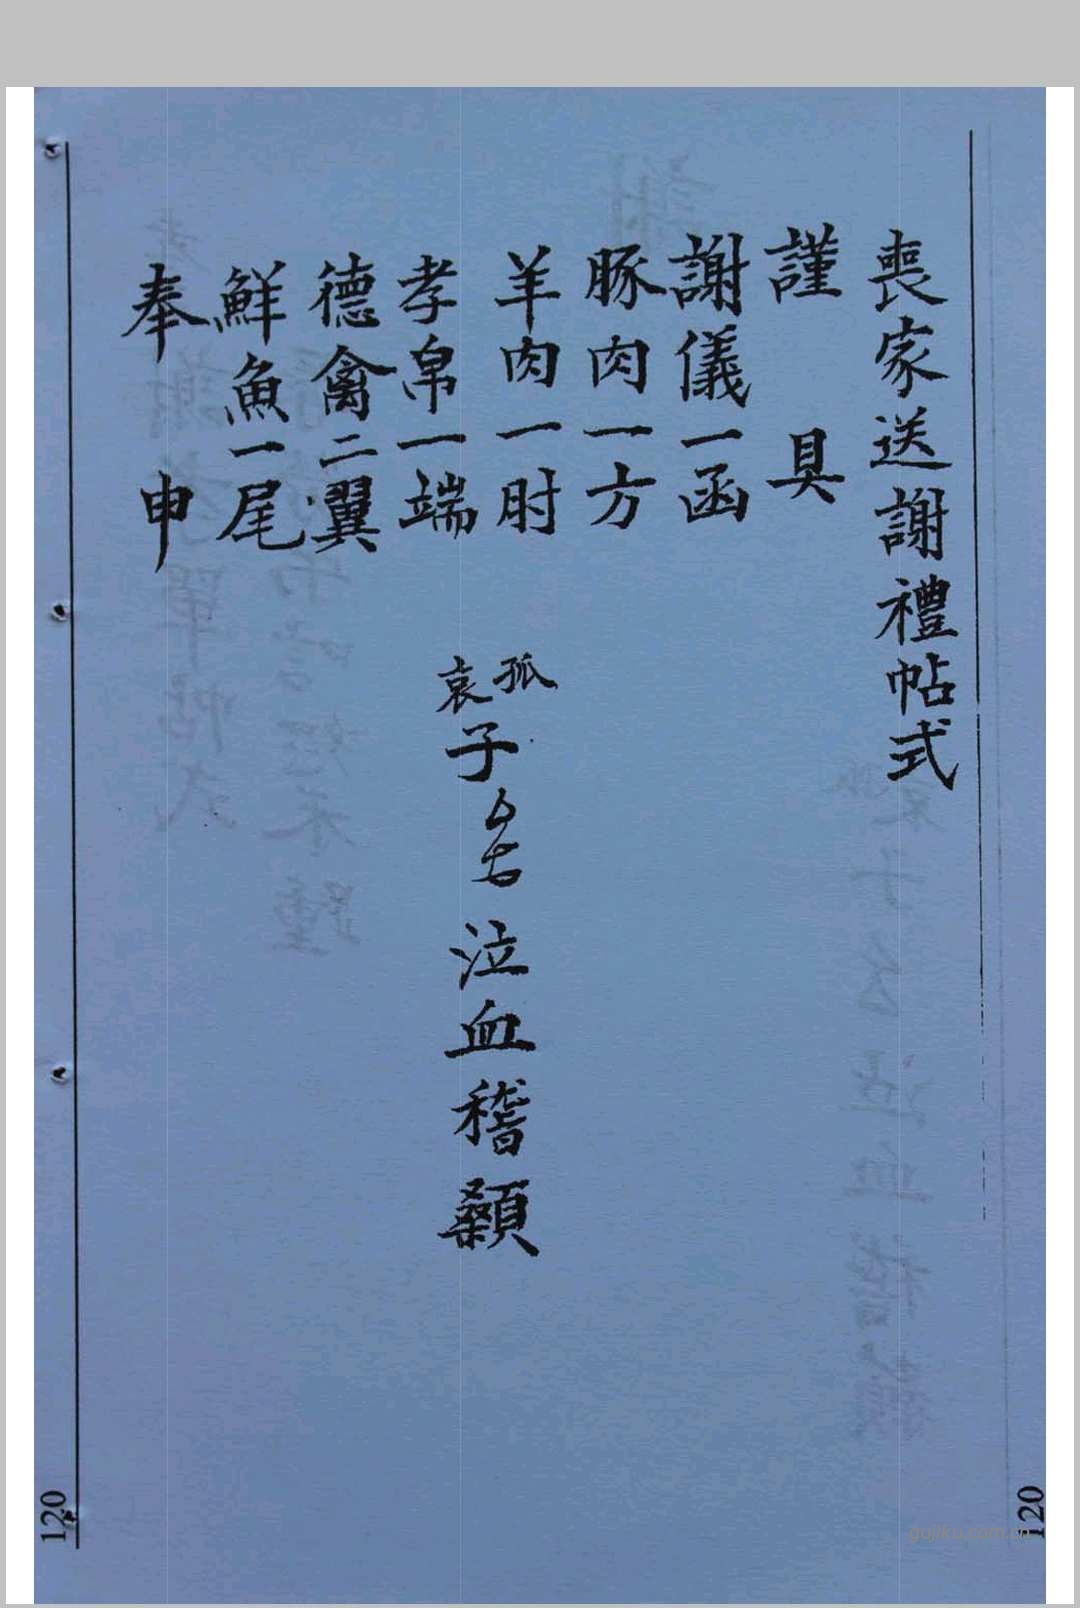 喪家送謝禮帖式
謹具
謝儀一函
豚肉一方
羊肉一肘
孝帛一端
德禽二翼
鮮魚一尾
奉申
孤哀子 泣血稽顙
120
120
gujiku.com.cn